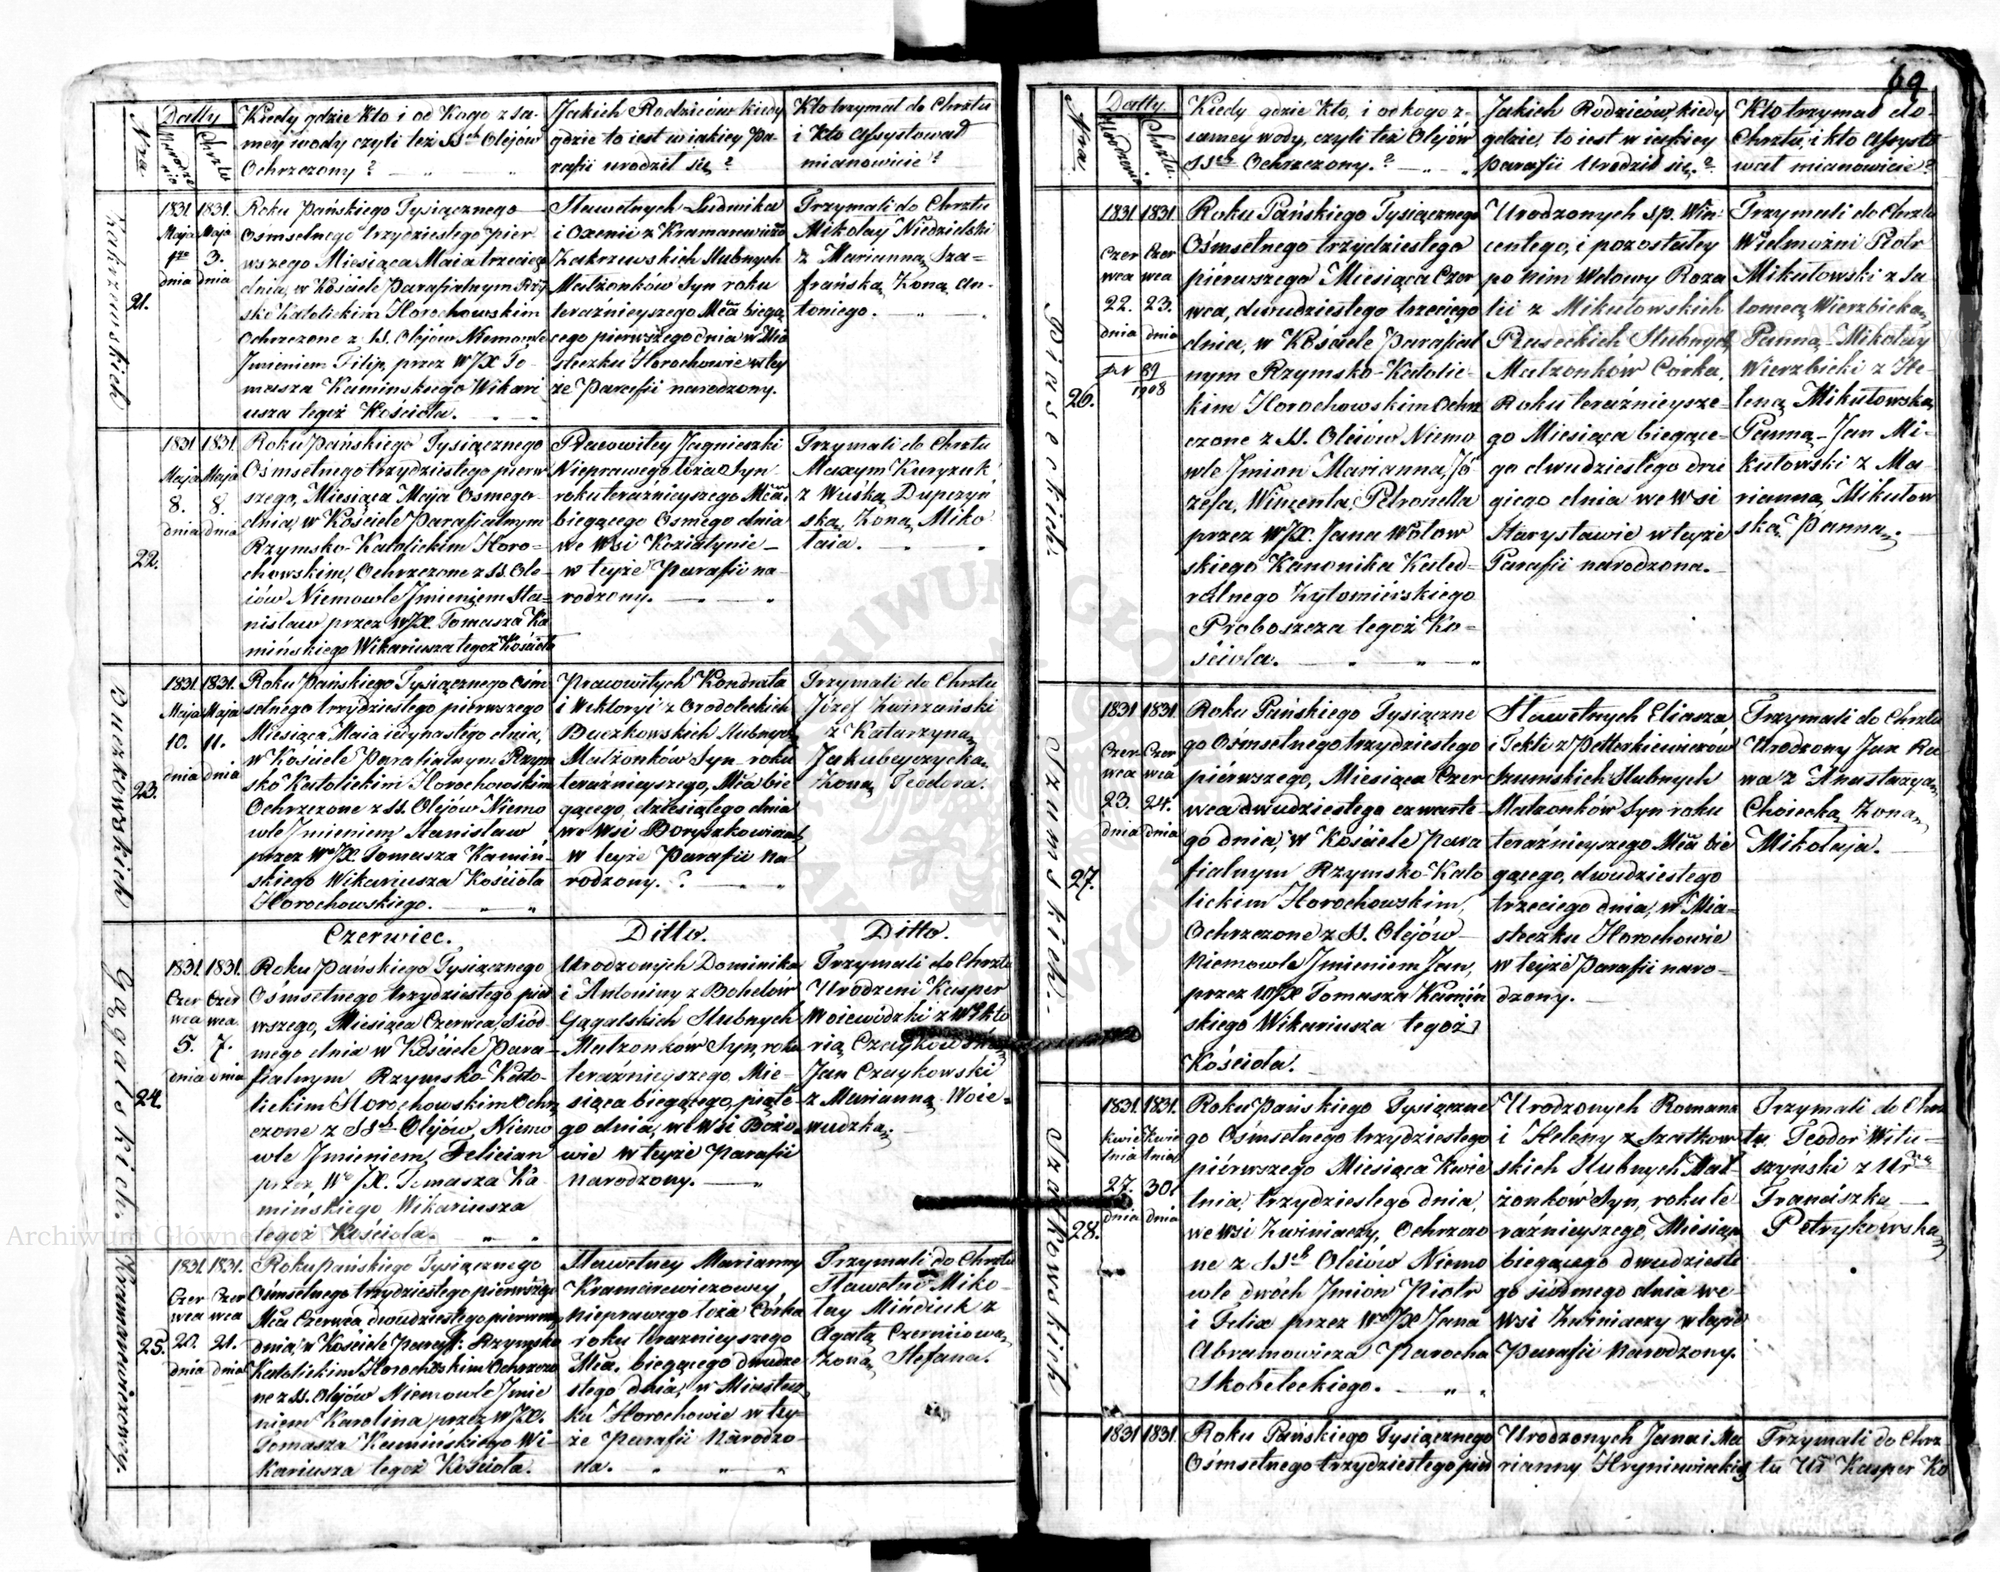 69
Nra
Datty
Urodzenia
Chrztu
Kiedy gdzie Kto i od Kogo z sa-
mey wody czyli też SSch Olejów
Ochrzczony?
Jakich Rodziców kiedy
gdzie to iest w iakiey Pa-
rafii urodził się?
Kto trzymał do Chrztu
i Kto Assystował
mianowicie?
Zakrzewskich
21.
1831. Maja 1go dnia
1831. Maja 3. dnia
Roku Pańskiego Tysiącznego
Ośmsetnego trzydziestego pier
wszego Miesiąca Maia trzeciego
dnia, w Kościele Parafialnym Rzym
sko Katolickim Horochowskim
Ochrzczone z SS. Olejów Niemowle
Jmieniem Filip, przez WJX To-
masza Kaminskiego Wikari
usza tegoż Kościoła.
Sławetnych Ludwika
i Oxenii z Kramarewiczów
Zakrzewskich Slubnych
Małżonków Syn roku
teraźnieyszego Mca biegą
cego pierwszego dnia w Mia
steczku Horochowie w tey
że Parafii narodzony.
Trzymali do Chrztu
Mikołay Niedzielski
z Marianną Sza-
frańską Zoną An-
toniego.
22.
1831. Maja 8. dnia
1831. Maja 8. dnia
Roku Pańskiego Tysiącznego
Ośmsetnego trzydziestego pierw
szego, Miesiąca Maja Osmego
dnia, w Kościele Parafialnym
Rzymsko-Katolickim Horo-
chowskim, Ochrzczone z SS. Ole-
iów Niemowle Jmieniem Sta-
nisław przez WJX. Tomasza Ka
mińskiego Wikariusza tegoż Kościoła
Pracowitey Jagnieszki
Nieprawego łoża Syn
roku teraźnieyszego Mca
biegącego Osmego dnia
we Wsi Koziatynie
w teyże Parafii na-
rodzony.
Trzymali do Chrztu
Maxym Kuryzuk
z Wuśką Dupczyń
ską Zoną Miko
łaia.
Buczkowskich
23.
1831. Maja 10. dnia
1831. Maja 11. dnia
Roku Pańskiego Tysiącznego Ośm
setnego trzydziestego pierwszego
Miesiąca Maia iedynastego dnia,
w Kościele Parafialnym Rzym
sko Katolickim Horochowskim
Ochrzczone z SS. Olejów Niemo
wle Jmieniem Stanisław
przez WJX. Tomasza Kamiń-
skiego Wikariusza Kościoła
Horochowskiego.
Pracowitych Kondrata
i Wiktoryi z Grodeckich
Buczkowskich Slubnych
Małżonków Syn roku
teraźnieyszego, Mca bie
gącego, dziesiątego dnia
we Wsi Boryszkowicach
w teyże Parafii na
rodzony.
Trzymali do Chrztu
Józef Zwirzański
z Katarzyną
Jakubczycką
Zoną Teodora.
Czerwiec.
Ditto.
Ditto.
Gągalskich.
24.
1831. Czerwca 5. dnia
1831. Czerwca 7. dnia
Roku Pańskiego Tysiącznego
Ośmsetnego trzydziestego pier
wszego, Miesiąca Czerwca, Siód
mego dnia w Kościele Para-
fialnym Rzymsko-Kato-
lickim Horochowskim Ochrz
czone z SSch Olejów, Niemo
wle Jmieniem Felician
przez WJX. Tomasza Ka-
mińskiego Wikariusza
tegoż Kościoła.
Urodzonych Dominika
i Antoniny z Bohelow
Gągalskich Slubnych
Małżonków Syn, roku
teraźnieyszego Mie-
siąca biegącego, piąte-
go dnia, we Wsi Bożo-
wie w teyże Parafii
narodzony.
Trzymali do Chrztu
Urodzeni Kasper
Woiewodzki z Wikto
rią Czaykowską
Jan Czaykowski
z Marianną Woie-
wodzką.
Kramarewiczowey.
25.
1831. Czerwca 20. dnia
1831. Czerwca 21. dnia
Roku Pańskiego Tysiącznego
Ośmsetnego trzydziestego pierwszego
Mca Czerwca dwudziestego pierwszego
dnia, w Kościele Paraf: Rzymsko
Katolickim Horochowskim Ochrzczo
ne z SS. Olejów Niemowle Jmie
niem Karolina przez WJX.
Tomasza Kamińskiego Wi-
kariusza tegoż Kościoła.
Sławetney Marianny
Kramarewiczowey
nieprawego łoża Córka
roku teraznieyszego
Mca. biegącego dwudzie
stego dnia, w Miastecz
ku Horochowie w tey-
że Parafii Narodzo-
na.
Trzymali do Chrztu
Sławetni Miko
łay Minduk z
Agatą Czerniową
Zoną Stefana.
Nra.
Datty.
Urodzenia
Chrztu.
Kiedy gdzie Kto, i od kogo z-
samey wody, czyli też Olejów
SSch Ochrzczony.?
Jakich Rodziców, kiedy
gdzie, to iest w iakiey
parafii Urodził się.?
Kto trzymał do-
Chrztu, i kto Assysto
wał mianowicie?
Ruseckich.
26.
1831. Czerwca 22. dnia
1831. Czerwca 23. dnia
89
1908
Roku Pańskiego Tysiącznego
Ośmsetnego trzydziestego
piérwszego Miesiąca Czer
wca, dwudziestego trzeciego
dnia, w Kościele Parafial
nym Rzymsko-Katolic-
kim Horochowskim Ochrz
czone z SS. Oleiów Niemo
wle Jmion Marianna, Jó
zefa, Wincenta, Petronella
przez WJX. Jana Wołow
skiego Kanonika Kated-
ralnego Zytomiérskiego
Proboszcza tegoż Ko-
ścioła.
Urodzonych sp. Win-
centego, i pozostałey
po Nim Wdowy Roza
lii z Mikutowskich
Ruseckich Slubnych,
Małżonków Córka,
Roku teraźnieysze-
go Miesiąca biegące-
go dwudziestego dru
giego dnia we Wsi
Starystawie w teyże
Parafii narodzona.
Trzymali do Chrztu
Wielmożni Piotr
Mikutowski z Sa
lomeą Wierzbicką
Panną - Mikołay
Wierzbicki z He-
leną Mikutowską
Panną - Jan Mi-
kutowski z Ma-
rianną Mikutow
ską Panną.
Szumskich.
27.
1831. Czerwca 23. dnia
1831. Czerwca 24. dnia
Roku Pańskiego Tysiączne
go Ośmsetnego trzydziestego
piérwszego, Miesiąca Czer
wca dwudziestego czwarte-
go dnia, w Kościele Para
fialnym Rzymsko-Kato
lickim Horochowskim,
Ochrzczone z SS. Olejów
Niemowle Jmieniem Jan,
przez WJX Tomasza Kamiń
skiego Wikariusza tegoż
Kościoła.
Sławetnych Eliasza
i Tekli z Petterkiewiczów
Szumskich Slubnych
Małżonków Syn roku
teraźnieyszego Mca bie
gącego, dwudziestego
trzeciego dnia, w Mia-
steczku Horochowie
w teyże Parafii naro-
dzony.
Trzymali do Chrztu
Urodzony Jan Ra
wa z Anastazyą
Choiecką Zoną
Mikołaja.
Szatkowskich
28.
1831. Kwietnia 27. dnia
1831. Kwietnia 30. dnia
Roku Pańskiego Tysiączne
go Ośmsetnego trzydziestego
piérwszego Miesiąca Kwie
tnia, trzydziestego dnia,
we wsi Zwiniaczy, Ochrzczo
ne z SSch Oleiów Niemo
wle dwóch Jmion Piotr
i Felix przez WJX Jana
Abramowicza Parocha
Skobeleckiego.
Urodzonych Romana
i Heleny z Szatkow
skich Slubnych Mał-
żonków Syn, roku te
raznieyszego, Miesiąca
biegącego dwudzieste
go siódmego dnia we-
wsi Zwiniaczy w teyże
Parafii Narodzony.
Trzymali do Chrz
tu Teodor Witu-
szyński z Ur
Franciszką
Petrykowską
1831
1831.
Roku Pańskiego Tysiącznego
Ośmsetnego trzydziestego pier
Urodzonych Jana i Ma
rianny Hryniewieckich
Trzymali do Chrz-
tu Ur Kasper Ko
Archiwum Główne Akt Dawnych